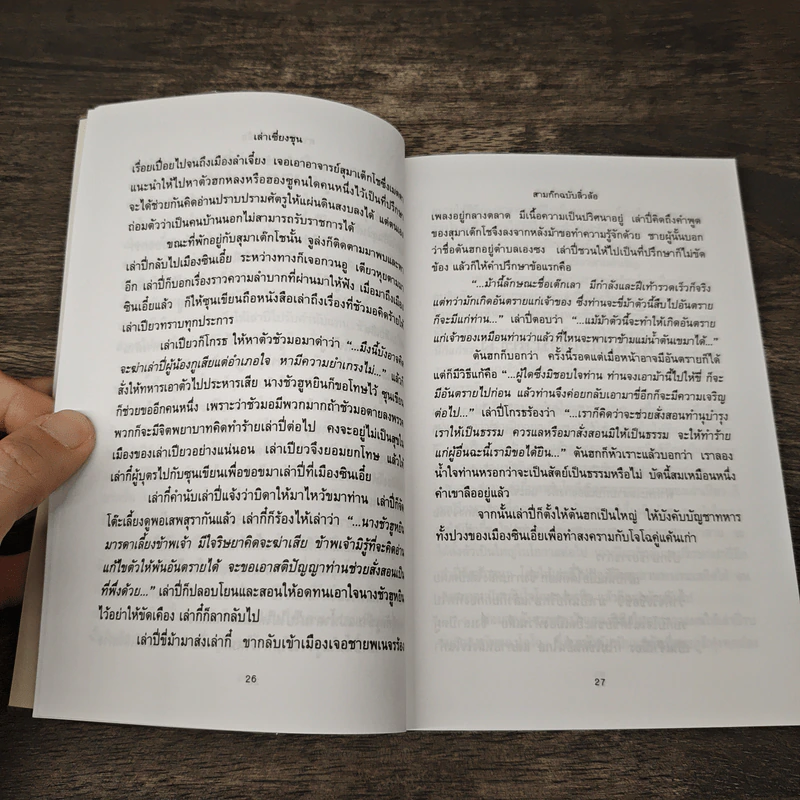 เล่าเซี่ยงชุน
เรื่อยเปื่อยไปจนถึงเมืองลำเจี๋ยง เจอเอาอาจารย์สุมาเต๊กโชซึ่งเมตตา
แนะนำให้ไปหาตัวฮกหลงหรือฮองซูคนใดคนหนึ่งไว้เป็นที่ปรึกษา
จะได้ช่วยกันคิดอ่านปราบปรามศัตรูให้แผ่นดินสงบลงได้
ถ่อมตัวว่าเป็นคนบ้านนอกไม่สามารถรับราชการได้
ขณะที่พักอยู่กับสุมาเต๊กโชนั้น จูล่งก็ติดตามมาพบและพา
เล่าปี่กลับไปเมืองซินเอี๋ย ระหว่างทางก็เจอกวนอู เตียวหุยตามมา
อีก เล่าปี่ก็บอกเรื่องราวความลำบากที่ผ่านมาให้ฟัง เมื่อมาถึงเมือง
ซินเอี๋ยแล้ว ก็ให้ซุนเขียนถือหนังสือเล่าถึงเรื่องที่ชัวมอคิดร้ายให้
เล่าเปียวทราบทุกประการ
เล่าเปียวก็โกรธ ให้หาตัวชัวมอมาด่าว่า “...มึงนี้บังอาจคิด
จะฆ่าเล่าปี่ผู้น้องกูเสียแต่อำเภอใจ หามีความยำเกรงไม่...” แล้วก็
สั่งให้ทหารเอาตัวไปประหารเสีย นางชัวฮูหยินก็ขอโทษไว้ ซุนเขียน
ก็ช่วยขออีกคนหนึ่ง เพราะว่าชัวมอมีพวกมากถ้าชัวมอตายลงพรรค
พวกก็จะมีจิตพยาบาทคิดทำร้ายเล่าปี่ต่อไป คงจะอยู่ไม่เป็นสุขใน
เมืองของเล่าเปียวอย่างแน่นอน เล่าเปียวจึงยอมยกโทษ แล้วให้
เล่ากี๋ผู้บุตรไปกับซุนเขียนเพื่อขอขมาเล่าปี่ที่เมืองซินเอี๋ย
เล่ากี๋คำนับเล่าปี่แจ้งว่าบิดาให้มาไหว้ขมาท่าน เล่าปี่ก็จัด
โต๊ะเลี้ยงดูพอเสพสุรากันแล้ว เล่ากี๋ก็ร้องไห้เล่าว่า “...นางชัวฮูหยิน
มารดาเลี้ยงข้าพเจ้า มีใจริษยาคิดจะฆ่าเสีย ข้าพเจ้ามิรู้ที่จะคิดอ่าน
แก้ไขตัวให้พ้นอันตรายได้ จะขอเอาสติปัญญาท่านช่วยสั่งสอนเป็น
ที่พึ่งด้วย...” เล่าปี่ก็ปลอบโยนและสอนให้อดทนเอาใจนางชัวฮูหยิน
ไว้อย่าให้ขัดเคือง เล่ากี๋ก็ลากลับไป
เล่าปี่ขี่ม้ามาส่งเล่ากี๋ ขากลับเข้าเมืองเจอชายพเนจรร้อง
26
สามก๊กฉบับลิ่วล้อ
เพลงอยู่กลางตลาด มีเนื้อความเป็นปริศนาอยู่ เล่าปี่คิดถึงคำพูด
ของสุมาเต๊กโชจึงลงจากหลังม้าขอทำความรู้จักด้วย ชายผู้นั้นบอก
ว่าชื่อตันฮกอยู่ตำบลเองซง เล่าปี่ชวนให้ไปเป็นที่ปรึกษาก็ไม่ขัด
ข้อง แล้วก็ให้คำปรึกษาข้อแรกคือ
“...ม้านี้ลักษณะชื่อเต๊กเลา มีกำลังและฝีเท้ารวดเร็วก็จริง
แต่ทว่ามักเกิดอันตรายแก่เจ้าของ ซึ่งท่านจะขี่ม้าตัวนี้สืบไปอันตราย
ก็จะมีแก่ท่าน...” เล่าปี่ตอบว่า “...แม้ม้าตัวนี้จะทำให้เกิดอันตราย
แก่เจ้าของเหมือนท่านว่าแล้ว ที่ไหนจะพาเราข้ามแม่น้ำตันเขมาได้...”
ตันฮกก็บอกว่า ครั้งนี้รอดแต่เมื่อหน้าอาจมีอันตรายก็ได้
แต่ก็มีวิธีแก้คือ “...ผู้ใดซึ่งมิชอบใจท่าน ท่านจงเอาม้านี้ไปให้ขี่ ก็จะ
มีอันตรายไปก่อน แล้วท่านจึงค่อยกลับเอามาขี่อีกก็จะมีความเจริญ
ต่อไป...” เล่าปี่โกรธร้องว่า “...เราก็คิดว่าจะช่วยสั่งสอนทำนุบำรุง
เราให้เป็นธรรม ควรแลหรือมาสั่งสอนมิให้เป็นธรรม จะให้ทำร้าย
แก่ผู้อื่นฉะนี้เรามิขอได้ยิน...” ตันฮกก็หัวเราะแล้วบอกว่า เราลอง
น้ำใจท่านหรอกว่าจะเป็นสัตย์เป็นธรรมหรือไม่ บัดนี้สมเหมือนหนึ่ง
คำเขาลืออยู่แล้ว
จากนั้นเล่าปี่ก็ตั้งให้ตันฮกเป็นใหญ่ ให้บังคับบัญชาทหาร
ทั้งปวงของเมืองซินเอี๋ยเพื่อทำสงครามกับโจโฉคู่แค้นเก่า
27